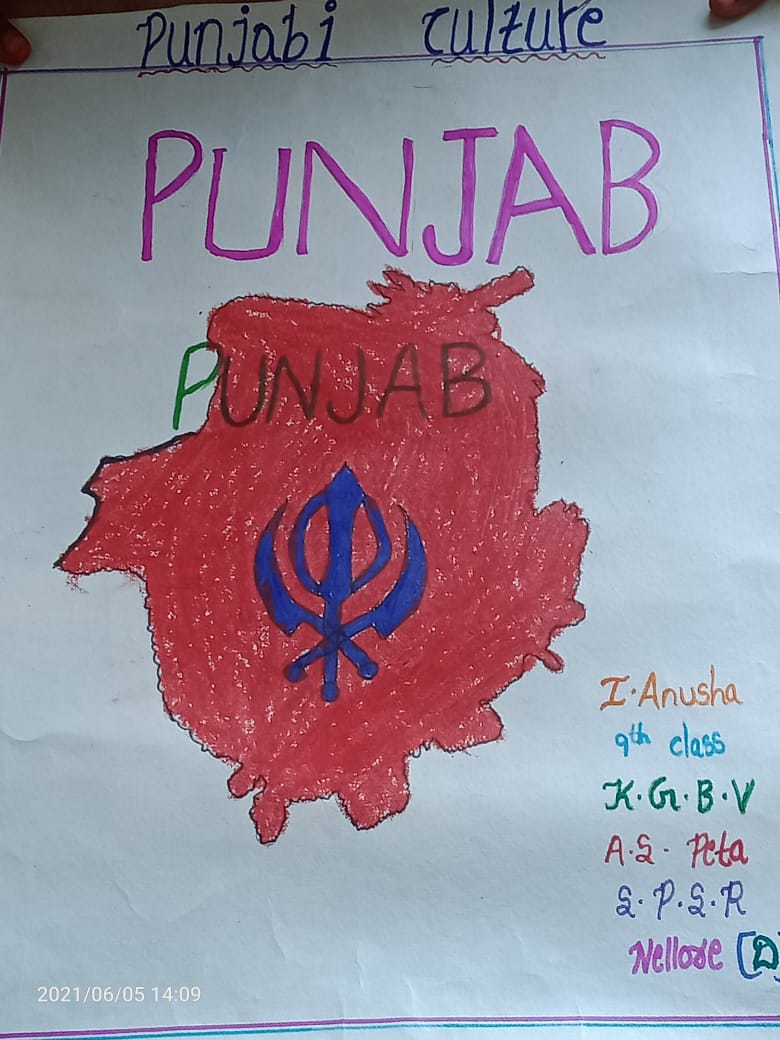 Punjabi culture
PUNJAB
PUNJAB
I. Anusha
9th class
K.G.B.V
A.S. Peta
S.P.S.R
Nellore [D]
2021/06/05 14:09